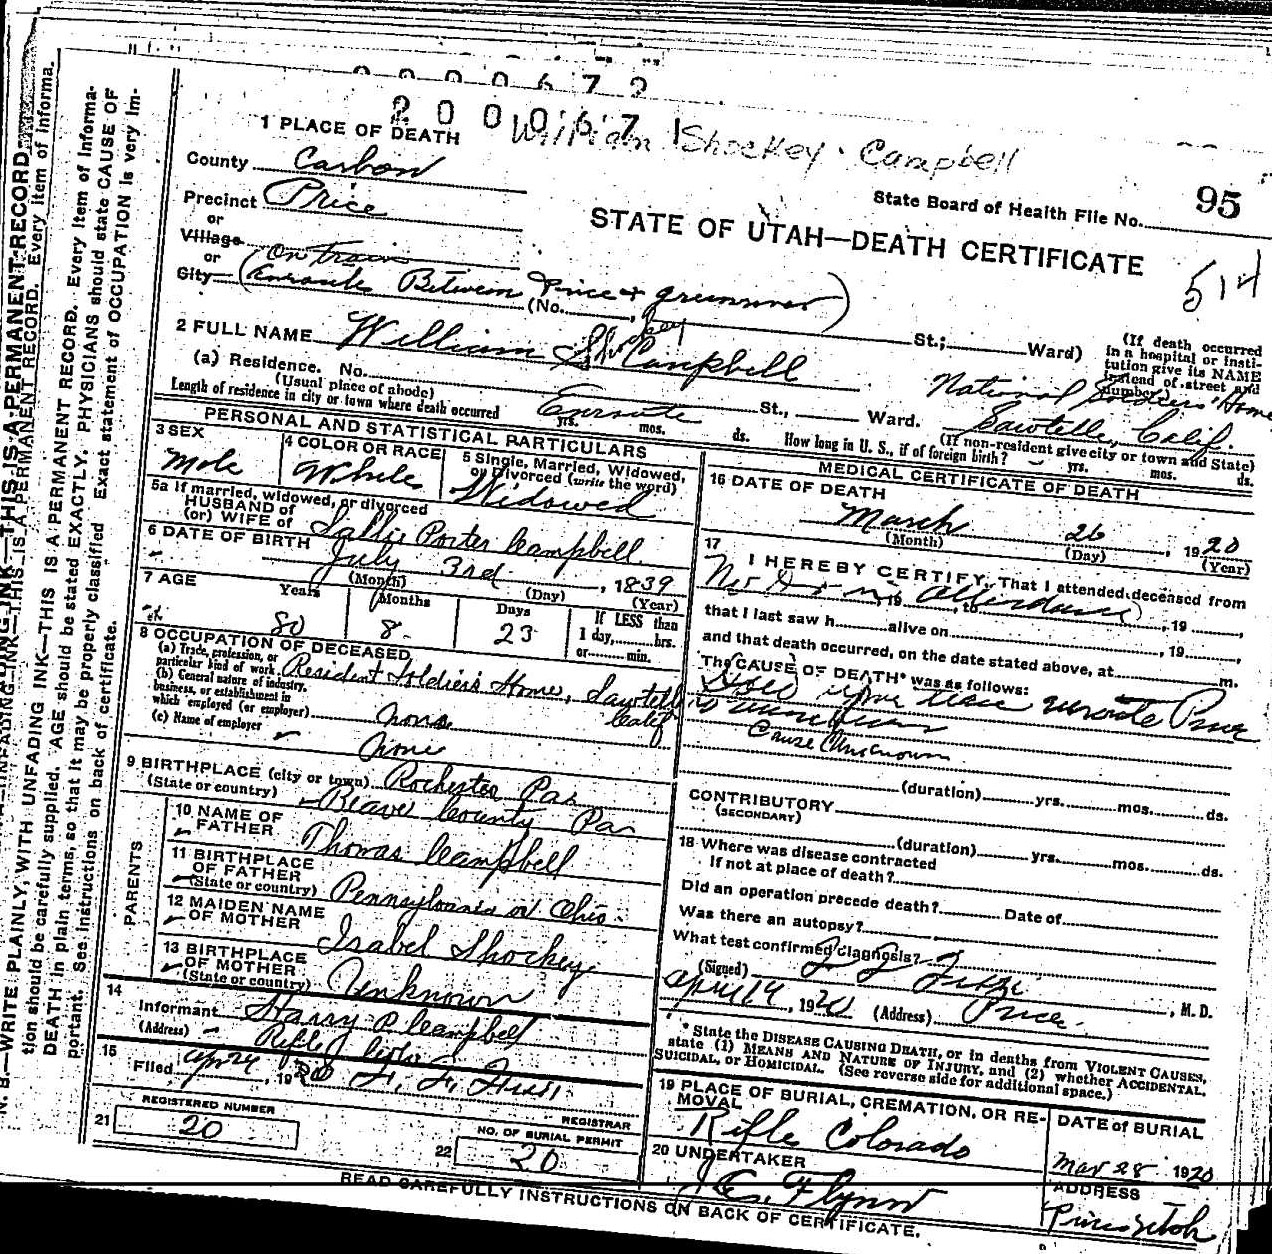 2000672
2000671
William Shockey Campbell
1 PLACE OF DEATH
County Carbon
State Board of Health File No. 95
Precinct Price
or
Village On Train
STATE OF UTAH—DEATH CERTIFICATE
514
or
City (Enroute Between Price & greenriver)
(No. St.; Ward)
(If death occurred in a hospital or institution give its NAME instead of street and number.)
2 FULL NAME William Shockey Campbell
(a) Residence. No. St., Ward. National Soldiers' Home
(Usual place of abode) Sawtelle, Calif.
(If non-resident give city or town and State)
Length of residence in city or town where death occurred Enroute yrs. mos. ds. How long in U. S., if of foreign birth? yrs. mos. ds.
PERSONAL AND STATISTICAL PARTICULARS
3 SEX
Male
4 COLOR OR RACE
White
5 Single, Married, Widowed, or Divorced (write the word)
Widowed
5a If married, widowed, or divorced
HUSBAND of
(or) WIFE of Sallie Porter Campbell
6 DATE OF BIRTH July 3rd, 1839
(Month) (Day) (Year)
7 AGE
Years Months Days
80 8 23
If LESS than
1 day, hrs.
or min.
8 OCCUPATION OF DECEASED
(a) Trade, profession, or particular kind of work Resident Soldiers Home, Sawtelle Calif
(b) General nature of industry, business, or establishment in which employed (or employer) none
(c) Name of employer none
9 BIRTHPLACE (city or town) Rochester Pa
(State or country) Beaver County Pa
PARENTS
10 NAME OF FATHER Thomas Campbell
11 BIRTHPLACE OF FATHER
(State or country) Pennsylvania or Ohio
12 MAIDEN NAME OF MOTHER Isabel Shockey
13 BIRTHPLACE OF MOTHER
(State or country) Unknown
14
Informant Harry P Campbell
(Address) Rifle Colo
15
Filed Apr 24, 1920
REGISTRAR
21 REGISTERED NUMBER
20
22 NO. OF BURIAL PERMIT
20
MEDICAL CERTIFICATE OF DEATH
16 DATE OF DEATH
March 26, 1920
(Month) (Day) (Year)
17
I HEREBY CERTIFY, That I attended deceased from
No Dr in attendance, 19, to, 19,
that I last saw h alive on, 19,
and that death occurred, on the date stated above, at m.
The CAUSE OF DEATH* was as follows:
Died upon train enroute Price
Cause Unknown
(duration) yrs. mos. ds.
CONTRIBUTORY
(SECONDARY)
(duration) yrs. mos. ds.
18 Where was disease contracted
If not at place of death?
Did an operation precede death? Date of
Was there an autopsy?
What test confirmed diagnosis?
(Signed), M. D.
April 14, 1920 (Address) Price
*State the DISEASE CAUSING DEATH, or in deaths from VIOLENT CAUSES, state (1) MEANS AND NATURE OF INJURY, and (2) whether ACCIDENTAL, SUICIDAL, or HOMICIDAL. (See reverse side for additional space.)
19 PLACE OF BURIAL, CREMATION, OR REMOVAL
Rifle Colorado
DATE of BURIAL
Mar 28 1920
20 UNDERTAKER
Flynn
ADDRESS
Price Utah
READ CAREFULLY INSTRUCTIONS ON BACK OF CERTIFICATE.
N. B.—WRITE PLAINLY, WITH UNFADING INK—THIS IS A PERMANENT RECORD. Every item of information should be carefully supplied. AGE should be stated EXACTLY. PHYSICIANS should state CAUSE OF DEATH in plain terms, so that it may be properly classified. Exact statement of OCCUPATION is very important. See instructions on back of certificate.